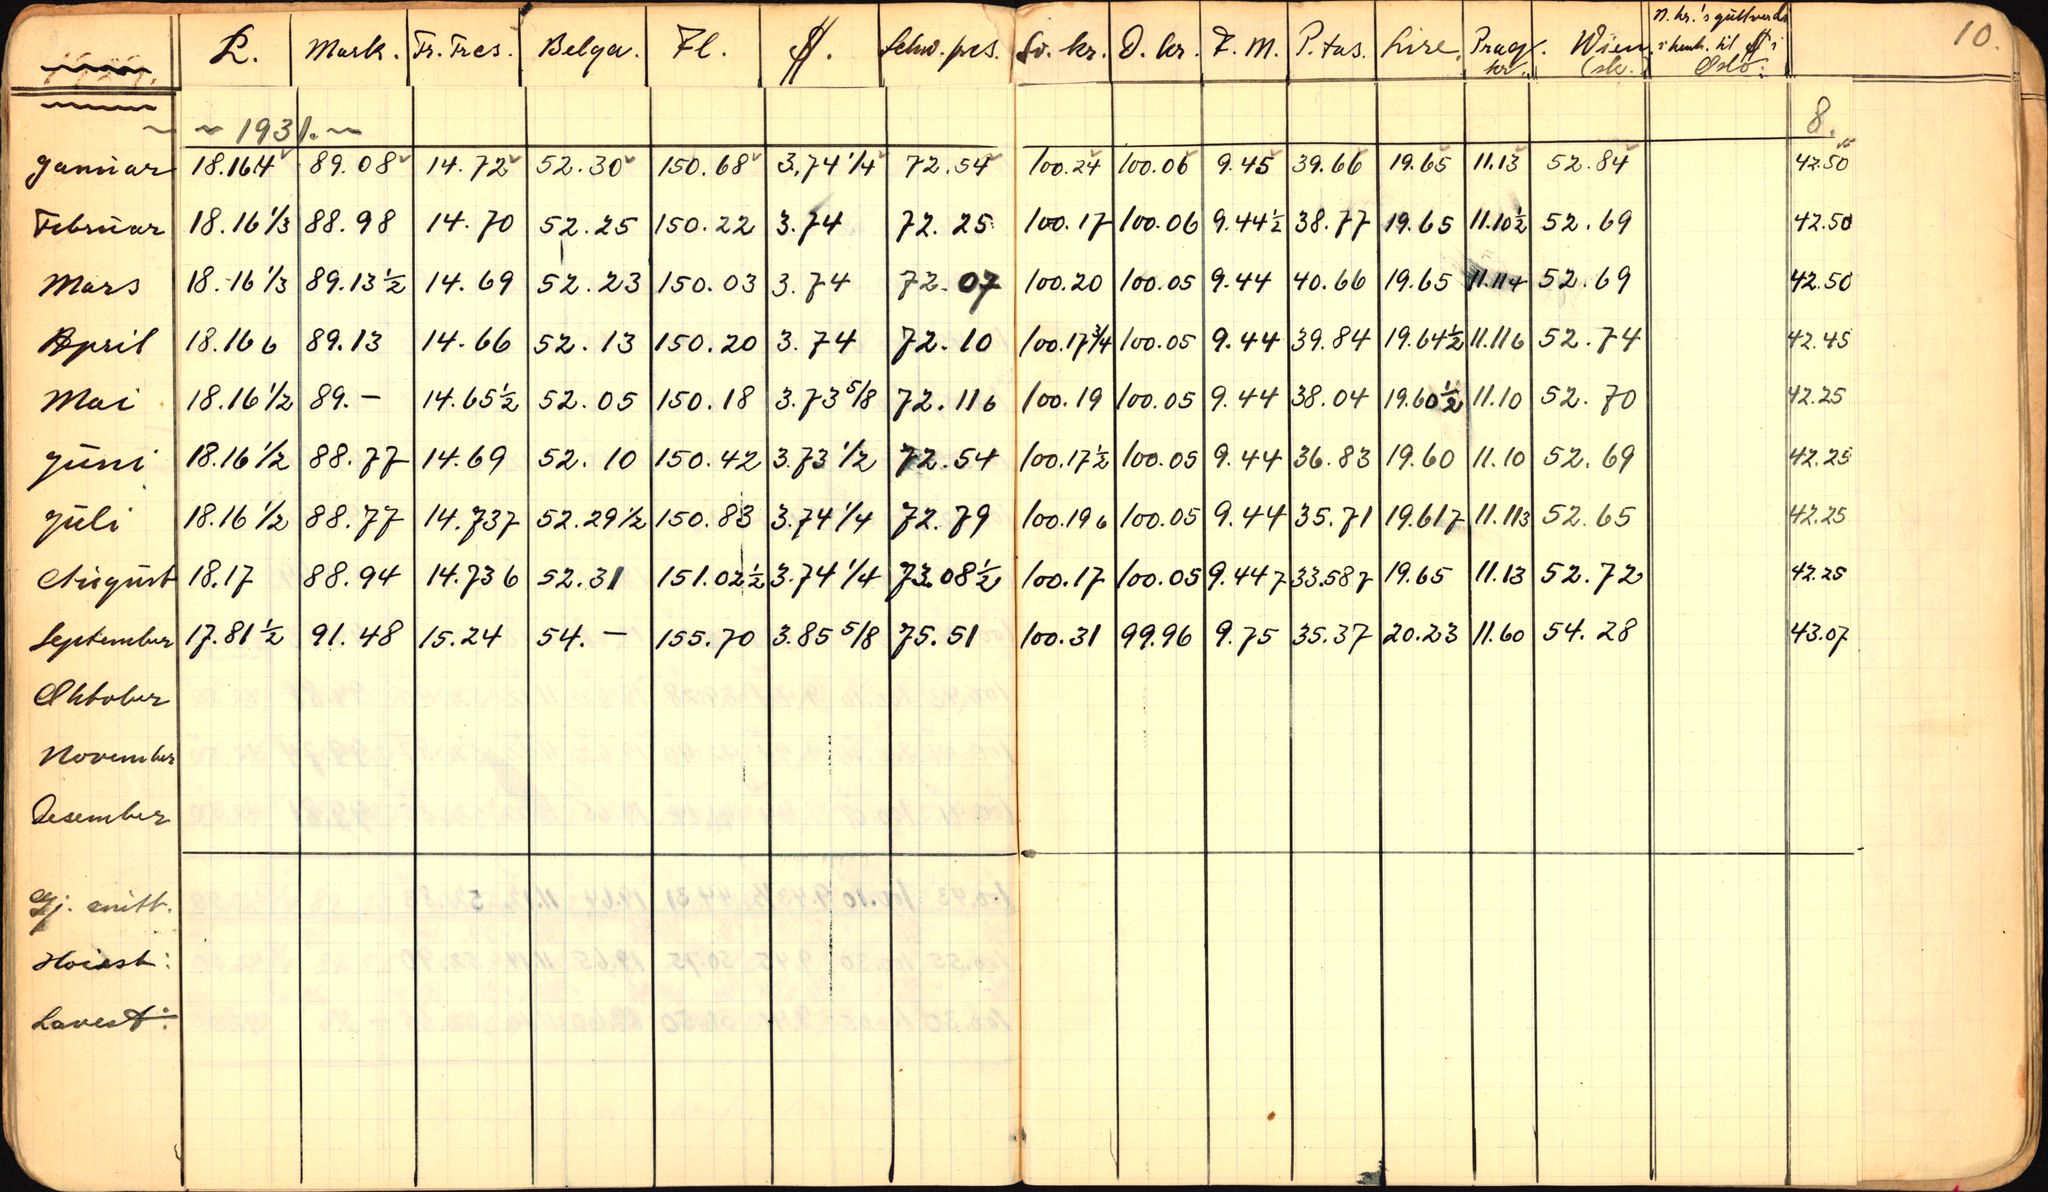 £. Mark. Fr. Frcs. Belga. Fl. $. Schw. frcs. Sv. kr. D. kr. F. M. P.tas. Lire. Prag kr. Wien (sk.) N. kr.'s gullverdi i henh. til $ i Oslo: 10.
~ 1931. ~ 8.
Januar 18.164 89.08 14.72 52.30 150.68 3.74 1/4 72.54 100.24 100.06 9.45 39.66 19.65 11.13 52.84 42.50
Februar 18.16 1/3 88.98 14.70 52.25 150.22 3.74 72.25 100.17 100.06 9.44 1/2 38.77 19.65 11.10 1/2 52.69 42.50
Mars 18.16 1/3 89.13 1/2 14.69 52.23 150.03 3.74 72.07 100.20 100.05 9.44 40.66 19.65 11.114 52.69 42.50
April 18.166 89.13 14.66 52.13 150.20 3.74 72.10 100.17 3/4 100.05 9.44 39.84 19.64 1/2 11.116 52.74 42.45
Mai 18.16 1/2 89.- 14.65 1/2 52.05 150.18 3.73 5/8 72.116 100.19 100.05 9.44 38.04 19.60 1/2 11.10 52.70 42.25
Juni 18.16 1/2 88.77 14.69 52.10 150.42 3.73 1/2 72.54 100.17 1/2 100.05 9.44 36.83 19.60 11.10 52.69 42.25
Juli 18.16 1/2 88.77 14.737 52.29 1/2 150.83 3.74 1/4 72.79 100.196 100.05 9.44 35.71 19.617 11.113 52.65 42.25
August 18.17 88.94 14.736 52.31 151.02 1/2 3.74 1/4 73.08 1/2 100.17 100.05 9.447 33.587 19.65 11.13 52.72 42.25
September 17.81 1/2 91.48 15.24 54.- 155.70 3.85 5/8 75.51 100.31 99.96 9.75 35.37 20.23 11.60 54.28 43.07
Oktober
November
Desember
Gj. snitt.
Høiest:
Lavest: